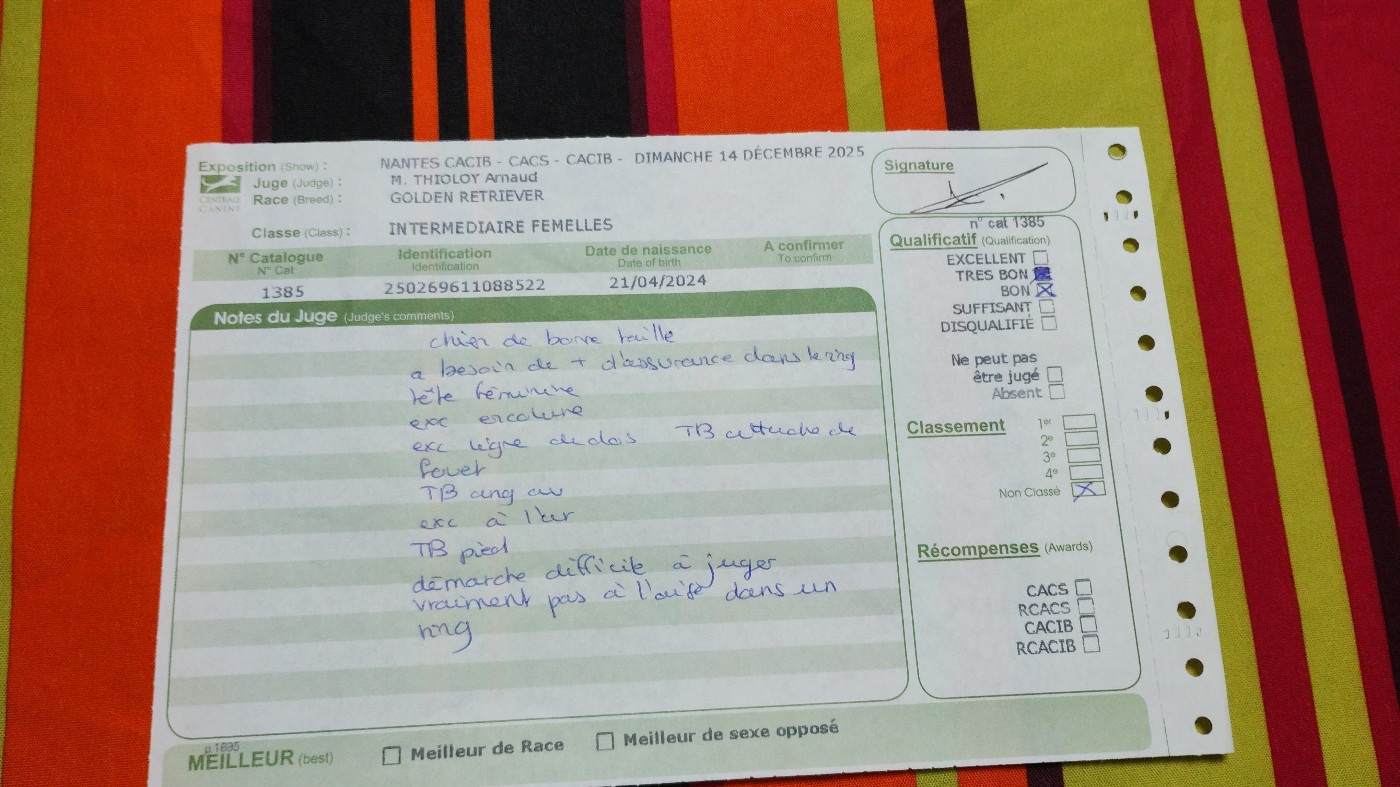 Exposition (Show) : NANTES CACIB - CACS - CACIB - DIMANCHE 14 DÉCEMBRE 2025
Juge (Judge) : M. THIOLOY Arnaud
Race (Breed) : GOLDEN RETRIEVER
CENTRALE
CANINE
Classe (Class) : INTERMEDIAIRE FEMELLES
N° Catalogue Identification Date de naissance A confirmer
N° Cat Identification Date of birth To confirm
1385 250269611088522 21/04/2024
Notes du Juge (Judge's comments)
chien de bonne taille
a besoin de + d'assurance dans le ring
tête féminine
exc encolure
exc ligne de dos TB attache de
fouet
TB ang av
exc à l'arr
TB pied
démarche difficile à juger
vraiment pas à l'aise dans un
ring
Signature
n° cat 1385
Qualificatif (Qualification)
EXCELLENT
TRES BON
BON
SUFFISANT
DISQUALIFIÉ
Ne peut pas
être jugé
Absent
Classement 1er
2e
3e
4e
Non Classé
Récompenses (Awards)
CACS
RCACS
CACIB
RCACIB
MEILLEUR (best) Meilleur de Race Meilleur de sexe opposé